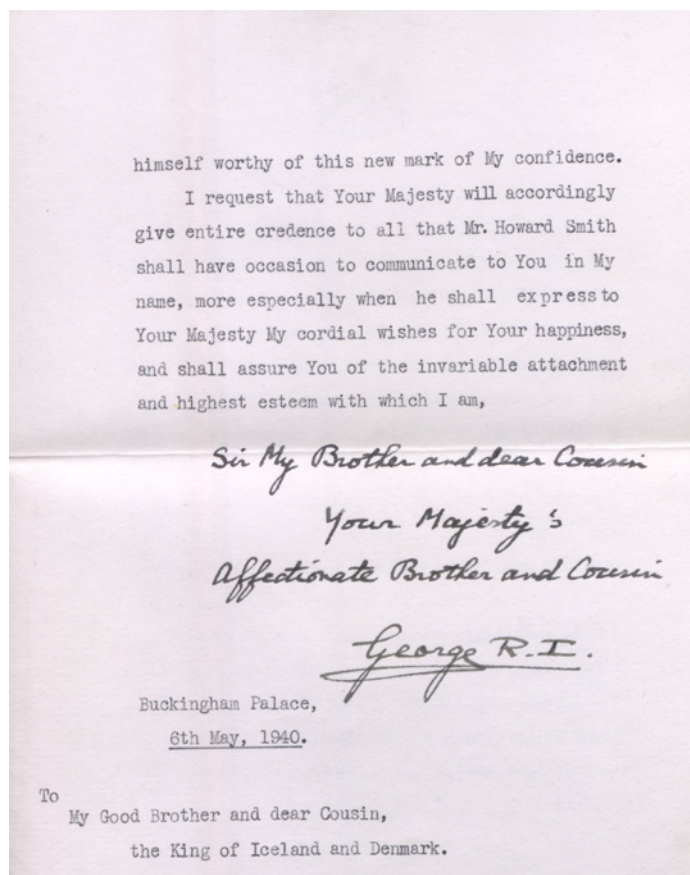 himself worthy of this new mark of My confidence.
I request that Your Majesty will accordingly
give entire credence to all that Mr. Howard Smith
shall have occasion to communicate to You in My
name, more especially when he shall express to
Your Majesty My cordial wishes for Your happiness,
and shall assure You of the invariable attachment
and highest esteem with which I am,
Sir My Brother and dear Cousin
Your Majesty's
Affectionate Brother and Cousin
George R.I.
Buckingham Palace,
6th May, 1940.
To
My Good Brother and dear Cousin,
the King of Iceland and Denmark.